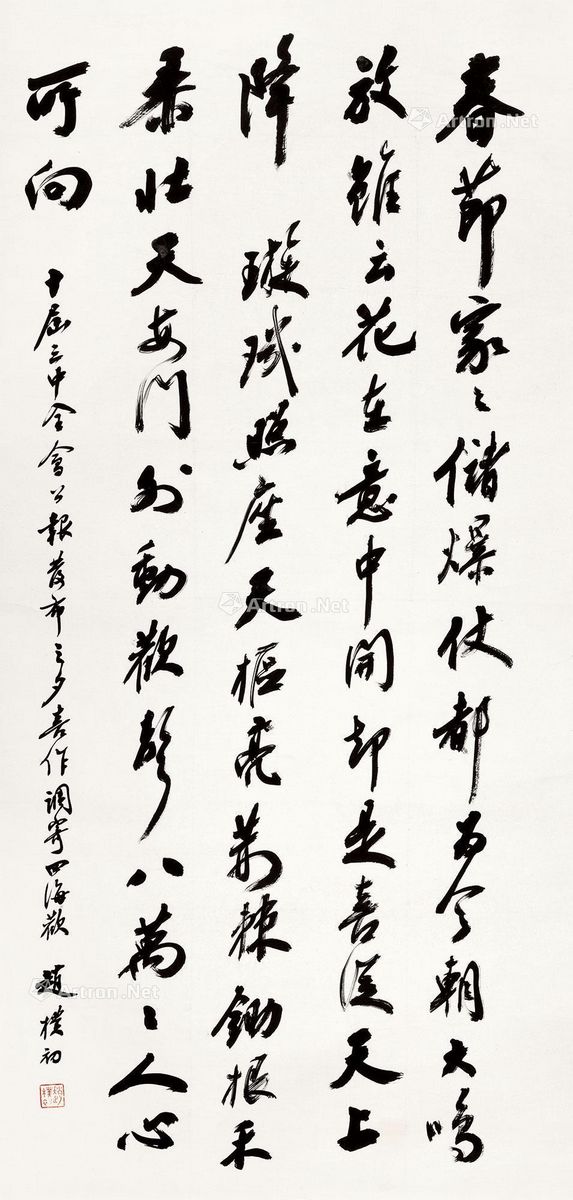 春節家々儲爆仗都為今朝大鳴
放雖云花在意中開却是喜從天上
降 璇璣照座天樞亮荊棘鋤根禾
黍壯天安門外動歡聲八萬々人心
所向
十届三中全會公報發布之夕喜作調寄四海歡 趙樸初
Artron.Net
Artron.Net
Artron.Net